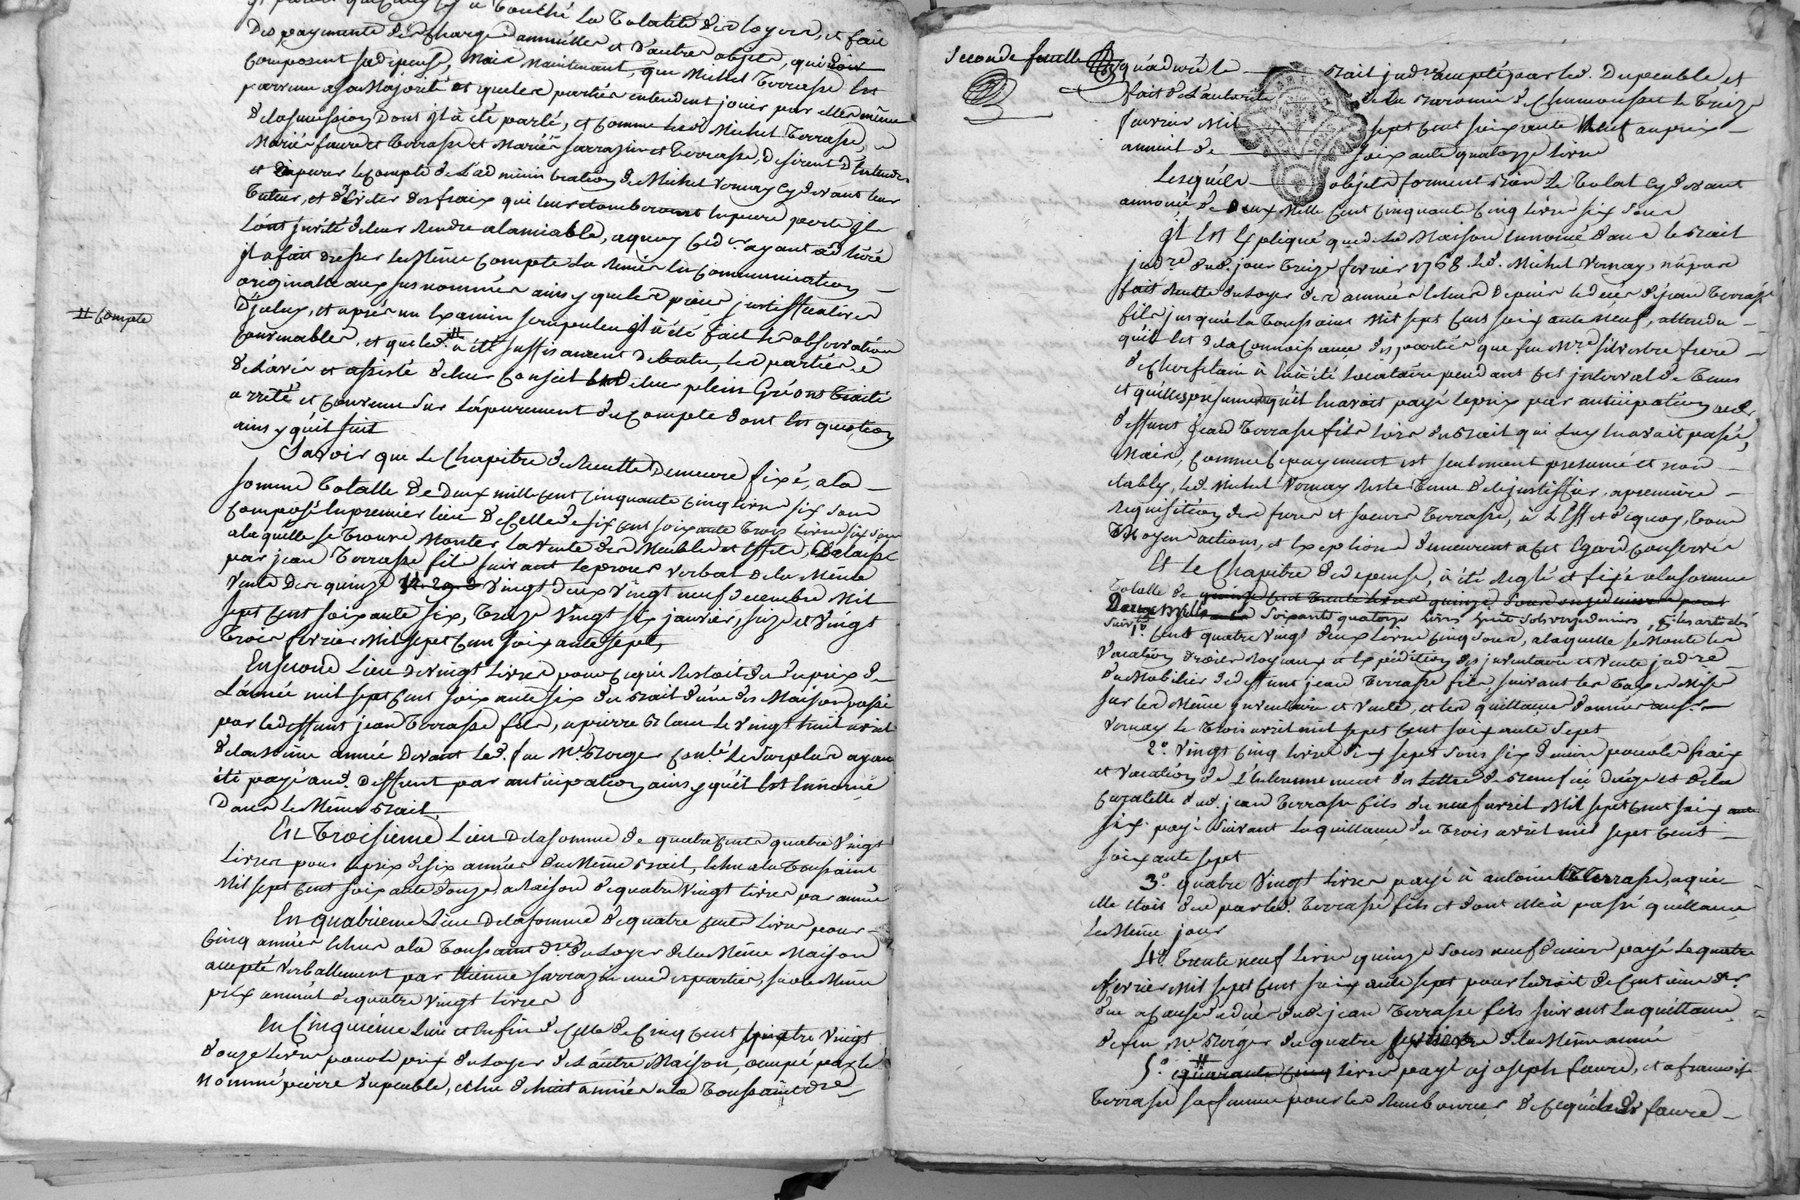 a touché la totalité des loyers, et fait
des payements des charges annuelles et d'autres objets, qui
composent sa dépense, mais maintenant, que Michel Terrasse est
parvenu a sa majorité et que les parties entendent jouir par elles même
de la succession dont il a été parlé, et comme led. Michel Terrasse,
Mariés faure et Terrasse et Mariés sarrazin et Terrasse, desirent d'entendre
et dapurer le compte de l'administration de Michel Vernay cy devant leur
tuteur, et d'eviter des fraix qui leur tomberoient en pure perte il
l'ont invité de leur rendre alamiable, a quoy led. ayant adhéré
il a fait dresser le même compte la remis en communication
originalle aux susnommés ainsy que les pièces justifficatives
d'jceluy, et aprés un examen scrupuleux il a été fait les observations
convenables, et que led. # a été suffisament debatu, les parties
de l'avis et assisté de leur conseil de leur plein gré ont traité
arrêté et convenu sur l'apurement du compte dont est question
ainsy qu'il suit
# Compte
Savoir que le Chapitre de Recette demeure fixé, a la
somme totalle de deux mille cent cinquante cinq livres six sous
composé en premier lieu de celle de six cent soixante trois livres six sous
a laquelle se trouve monter la vente des meubles et effets delaissé
par jean Terrasse fils suivant le procès verbal de la même
vente des quinze vingt deux vingt neuf decembre mil
sept cent soixante six, treize vingt six janvier, seize et vingt
trois fevrier mil sept cent soixante sept,
En second lieu de vingt livres pour ce qui restoit du du prix de
l'année mil sept cent soixante six du bail d'une des maisons passé
par le deffunt jean Terrasse fils, a pierre le vingt huit avril
de la même année devant led. feu Me Borger le surplus ayant
été payé aud. deffunt par anticipation ainsy qu'il est enoncé
dans le même bail,
En troisieme lieu de la somme de quatre cents quatre vingt
livres pour le prix de six années du même bail, echue a la toussaint
mil sept cent soixante douze, a raison de quatre vingt livres par année
En quatrieme lieu de la somme de quatre cents livres pour
cinq années echues a la toussaint dre du loyer de la même maison
accepté verballement par etienne sarrazin une des parties, sur le même
prix annuel de quatre vingt livres
En cinquiéme lieu et enfin de celle de cinq cent quatre vingt
douze livres pour le prix du loyer de l'autre maison, occupé par le
nommé pierre dupeuble, echue de huit années a la toussaint dre
seconde feuille
quadvulé bail judre accepté par led. Dupeuble et
fait de l'autorité de la baronnie de Chamousset le treize
fevrier mil sept cent soixante huit au prix
annuel de soixante quatorze livres
Lesquels objets forment bien le total cy devant
annoncé de deux mille cent cinquante cinq livres six sous
Il est expliqué que de la maison enoncé dans le bail
judre dud. jour treize fevrier 1768 led. Michel Vernay, n'a pas
fait recette du loyer des années echues depuis le décés de jean Terrasse
fils jusqu'a la toussaint mil sept cent soixante neuf, attendu
qu'il est de la connoissance des parties que feu Mre Silvestre frere
de a été locataire pendant cet interval de tems
et qu'elles presument qu'il en avoit payé le prix par anticipation aud.
deffunt jean Terrasse fils lors du bail qui luy en avait passé,
mais, comme ce payement est seulement presumé et non
etably, led. Michel Vernay reste tenu de le justiffier, a premiere
requisition des freres et soeurs Terrasse, a l'effet de quoy, tous
moyens actions, et exceptions demeurent a cet egard conservés
Et le Chapitre de depense, a été reglé et fixé a la somme
totalle de quinze cent trente livres quinze sous onze deniers pour
Deux mille soixante quatorze livres huit sols onze deniers, les articles
suivts
1° Cent quatre vingt deux livres cinq sous, a laquelle se monte les
vacations droits royaux et expéditions des inventaire et vente judre
du mobilier dud. deffunt jean Terrasse fils, suivant les taxes mises
sur les même inventaire et vente, et les quittances données aud.
Vernay le trois avril mil sept cent soixante sept
2° Vingt cinq livres dix sept sous six deniers pour les fraix
et vacations de l'enterinnement des lettres de benefice d'age et de la
curatelle dud. jean Terrasse fils du neuf avril mil sept cent soixante
six payé suivant la quittance du trois avril mil sept cent
soixante sept
3° quatre vingt livres payé a antoinette Terrasse, a qui
elle étois due par led. Terrasse fils et dont elle a passé quittance
le même jour
4° trente neuf livres quinze sous neuf deniers payé le quatre
fevrier mil sept cent soixante sept pour le droit de centieme der
due a cause du decés dud. jean Terrasse fils suivant la quittance
de feu Me Borger du quatre fevrier de la même année
5° # quarante cinq livres payé a joseph faure, et a francoise
Terrasse sa femme pour les rembourcer de ce que led. faure